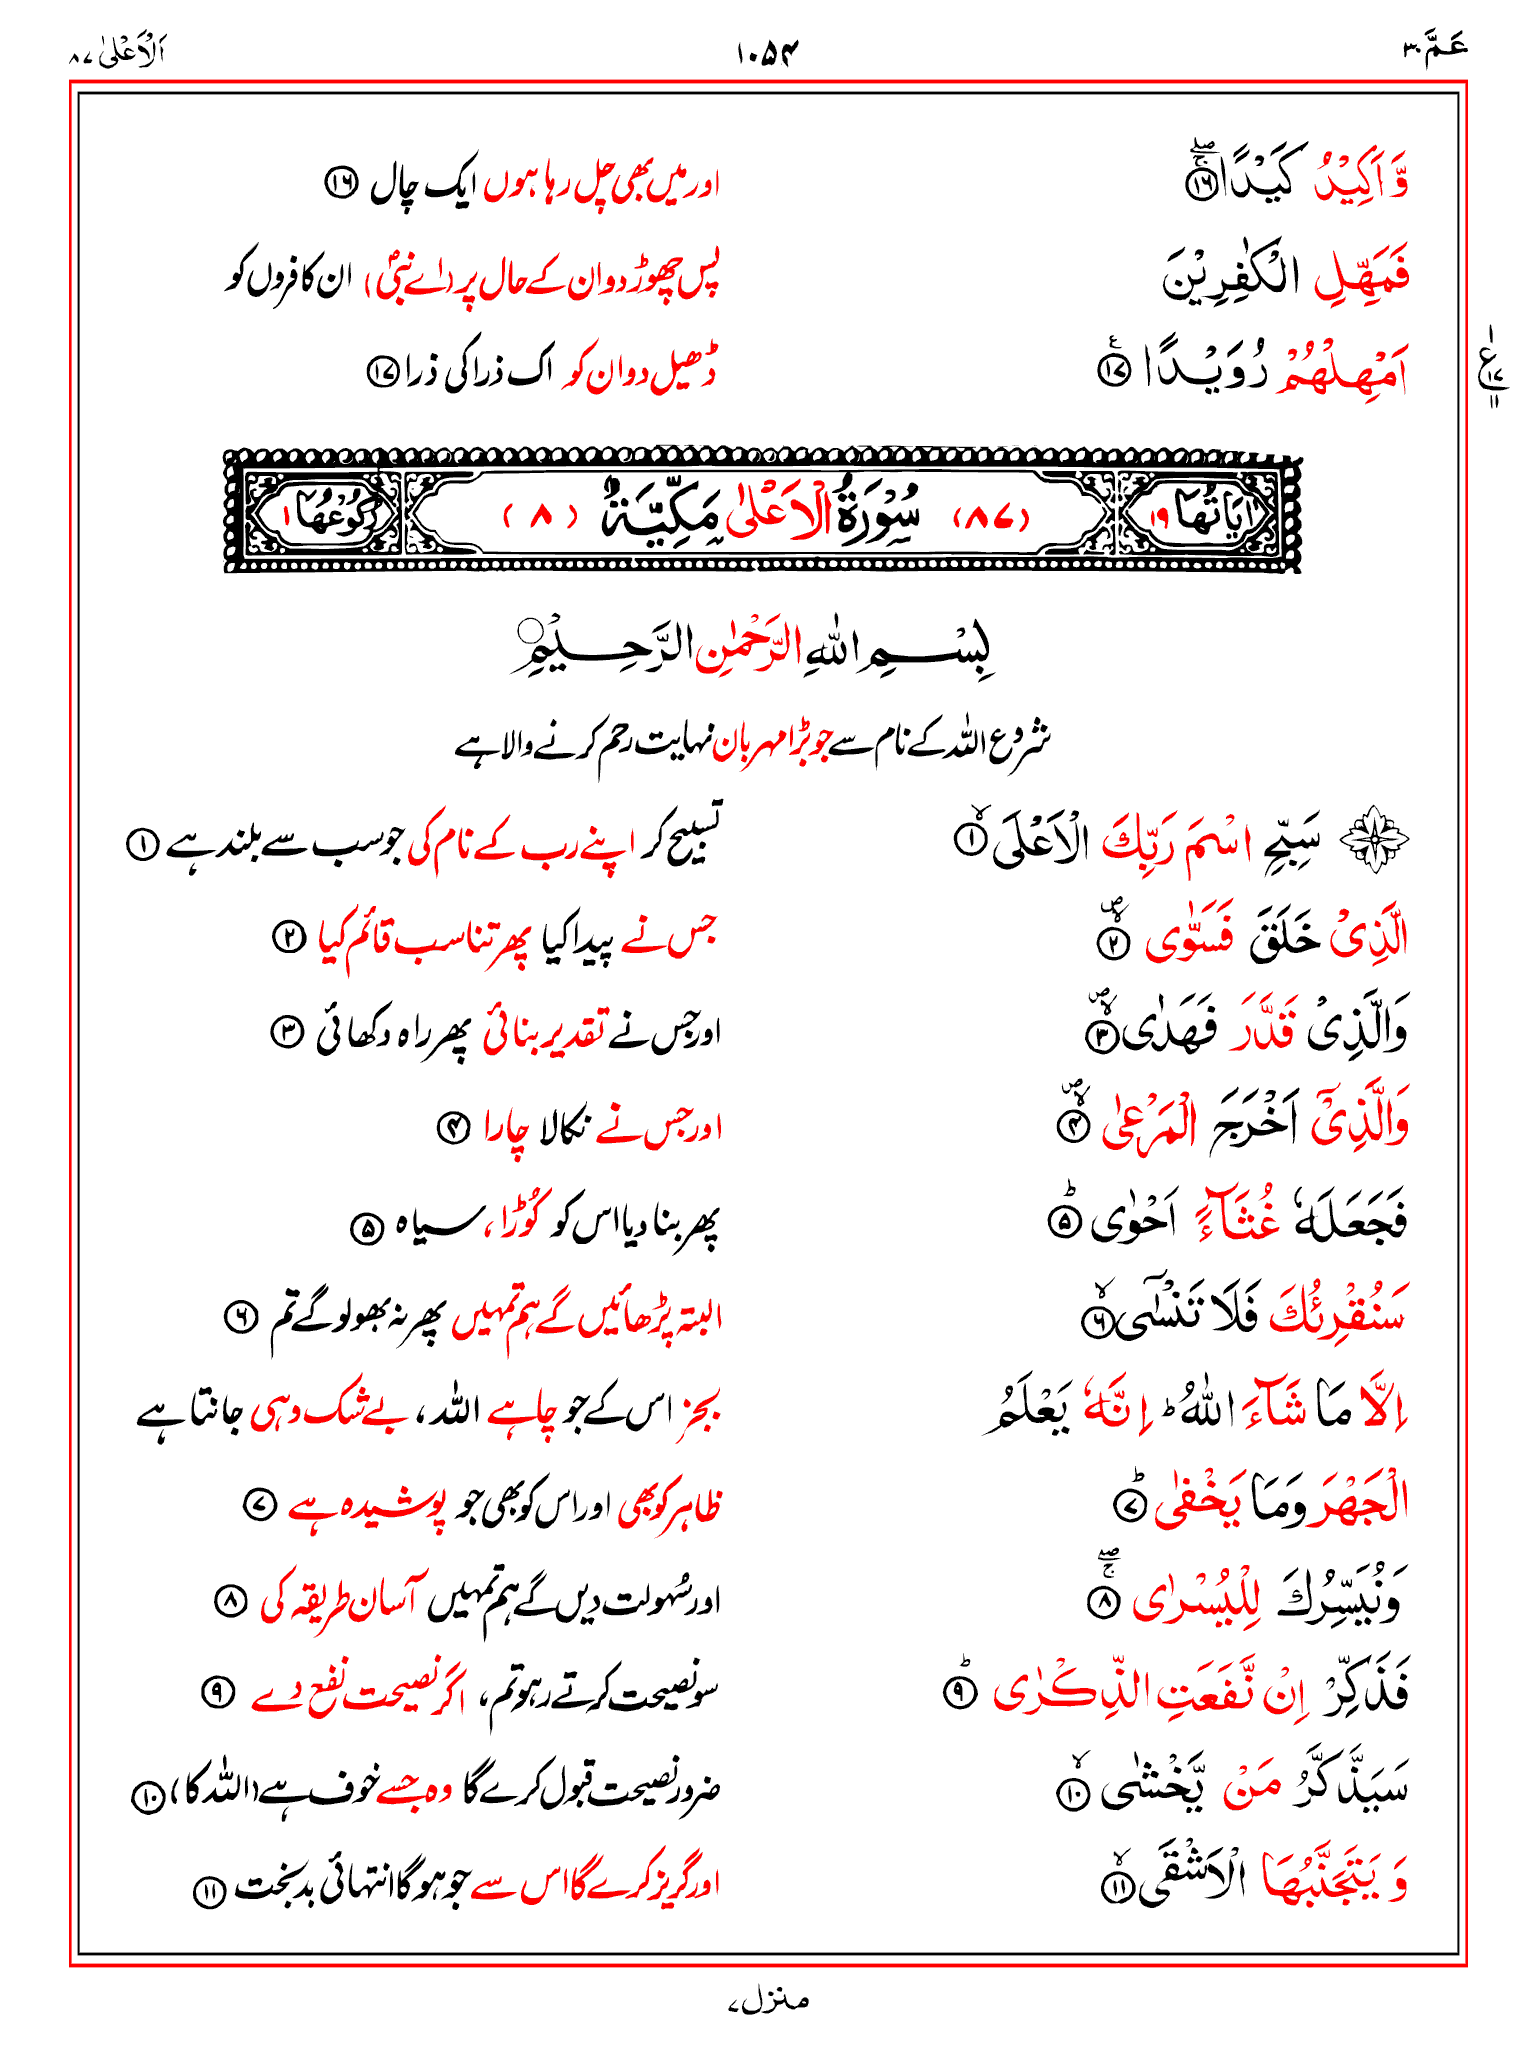 عَمَّ ۳۰ ۱۰۵۴ اَلْاَعْلٰى ۸۷
وَّاَكِيْدُ كَيْدًا ۱۶ اور میں بھی چل رہا ہوں ایک چال ۱۶
فَمَهِّلِ الْكٰفِرِيْنَ پس چھوڑ دو ان کے حال پر (اے نبیؐ) ان کافروں کو
اَمْهِلْهُمْ رُوَيْدًا ۱۷ ڈھیل دو ان کو اک ذرا کی ذرا ۱۷
ع ۱ ۱۷ ۱۱
اٰيَاتُهَا ۱۹ (۸۷) سُوْرَةُ الْاَعْلٰى مَكِّيَّةٌ (۸) رُكُوْعُهَا ۱
بِسْمِ اللّٰهِ الرَّحْمٰنِ الرَّحِيْمِ
شروع اللہ کے نام سے جو بڑا مہربان نہایت رحم کرنے والا ہے
سَبِّحِ اسْمَ رَبِّكَ الْاَعْلَى ۱ تسبیح کر اپنے رب کے نام کی جو سب سے بلند ہے ۱
الَّذِيْ خَلَقَ فَسَوّٰى ۲ جس نے پیدا کیا پھر تناسب قائم کیا ۲
وَالَّذِيْ قَدَّرَ فَهَدٰى ۳ اور جس نے تقدیر بنائی پھر راہ دکھائی ۳
وَالَّذِيْۤ اَخْرَجَ الْمَرْعٰى ۴ اور جس نے نکالا چارا ۴
فَجَعَلَهٗ غُثَآءً اَحْوٰى ۵ پھر بنا دیا اس کو کُوڑا، سیاہ ۵
سَنُقْرِئُكَ فَلَا تَنْسٰٓى ۶ البتہ پڑھائیں گے ہم تمہیں پھر نہ بھولو گے تم ۶
اِلَّا مَا شَآءَ اللّٰهُ ؕ اِنَّهٗ يَعْلَمُ بجز اس کے جو چاہے اللہ، بے شک وہی جانتا ہے
الْجَهْرَ وَمَا يَخْفٰى ۷ ظاہر کو بھی اور اس کو بھی جو پوشیدہ ہے ۷
وَنُيَسِّرُكَ لِلْيُسْرٰى ۸ اور سُہولت دیں گے ہم تمہیں آسان طریقہ کی ۸
فَذَكِّرْ اِنْ نَّفَعَتِ الذِّكْرٰى ۹ سو نصیحت کرتے رہو تم، اگر نصیحت نفع دے ۹
سَيَذَّكَّرُ مَنْ يَّخْشٰى ۱۰ ضرور نصیحت قبول کرے گا وہ جسے خوف ہے (اللہ کا) ۱۰
وَيَتَجَنَّبُهَا الْاَشْقَى ۱۱ اور گریز کرے گا اس سے جو ہو گا انتہائی بدبخت ۱۱
منزل ۷